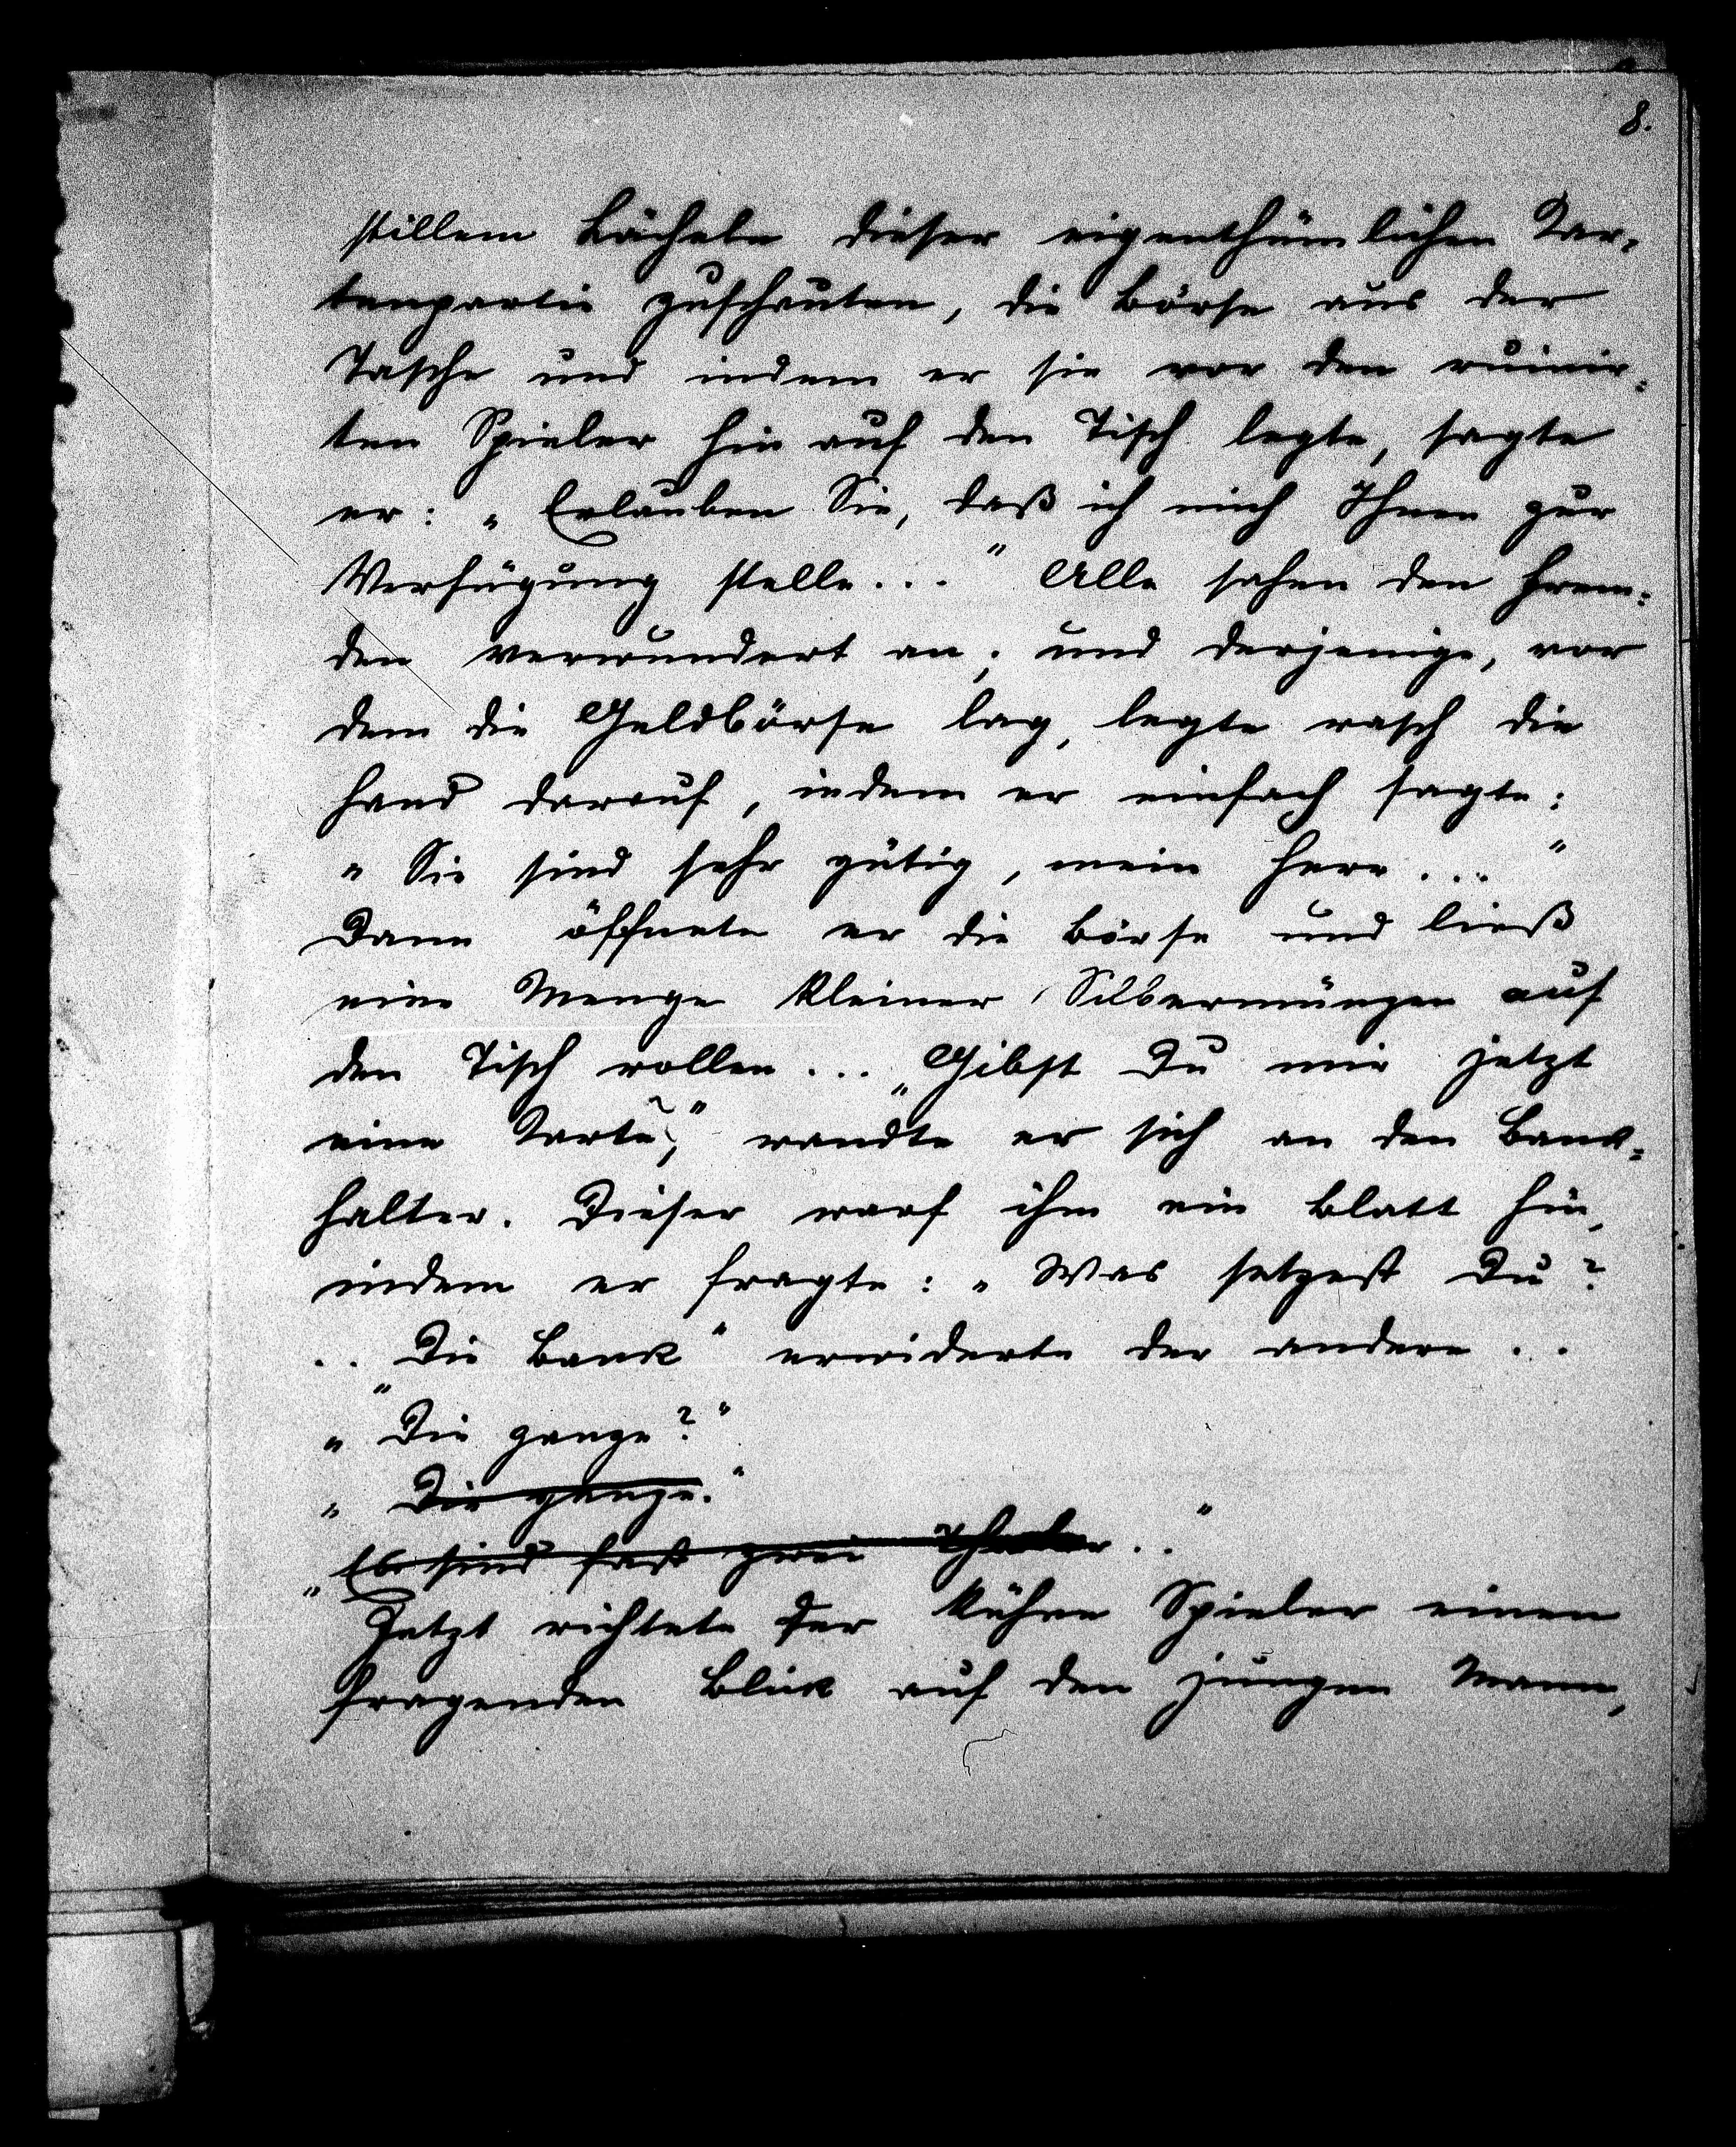 8.
stillem Lächeln dieser eigenthümlichen Kar-
tenpartie zuschauten, die Börse aus der
Tasche und indem er sie vor den ruinir-
ten Spieler hin auf den Tisch legte, sagte
er: „Erlauben Sie, daß ich mich Ihnen zur
Verfügung stelle..." Alle sahen den Frem-
den verwundert an; und derjenige, vor
dem die Geldbörse lag, legte rasch die
Hand darauf, indem er einfach sagte:
„Sie sind sehr gütig, mein Herr..."
Dann öffnete er die Börse und ließ
eine Menge kleiner Silbermünzen auf
den Tisch rollen... „Gibst Du mir jetzt
eine Karte," wandte er sich an den Bank-
halter. Dieser warf ihm ein Blatt hin,
indem er fragte: „Was setzest Du?
.. „Die Bank" erwiderte der andere..
„Die ganze?"
„Die ganze."
„Es sind fast zwei Thaler.."
Jetzt richtete der kühne Spieler einen
fragenden Blick auf den jungen Mann,